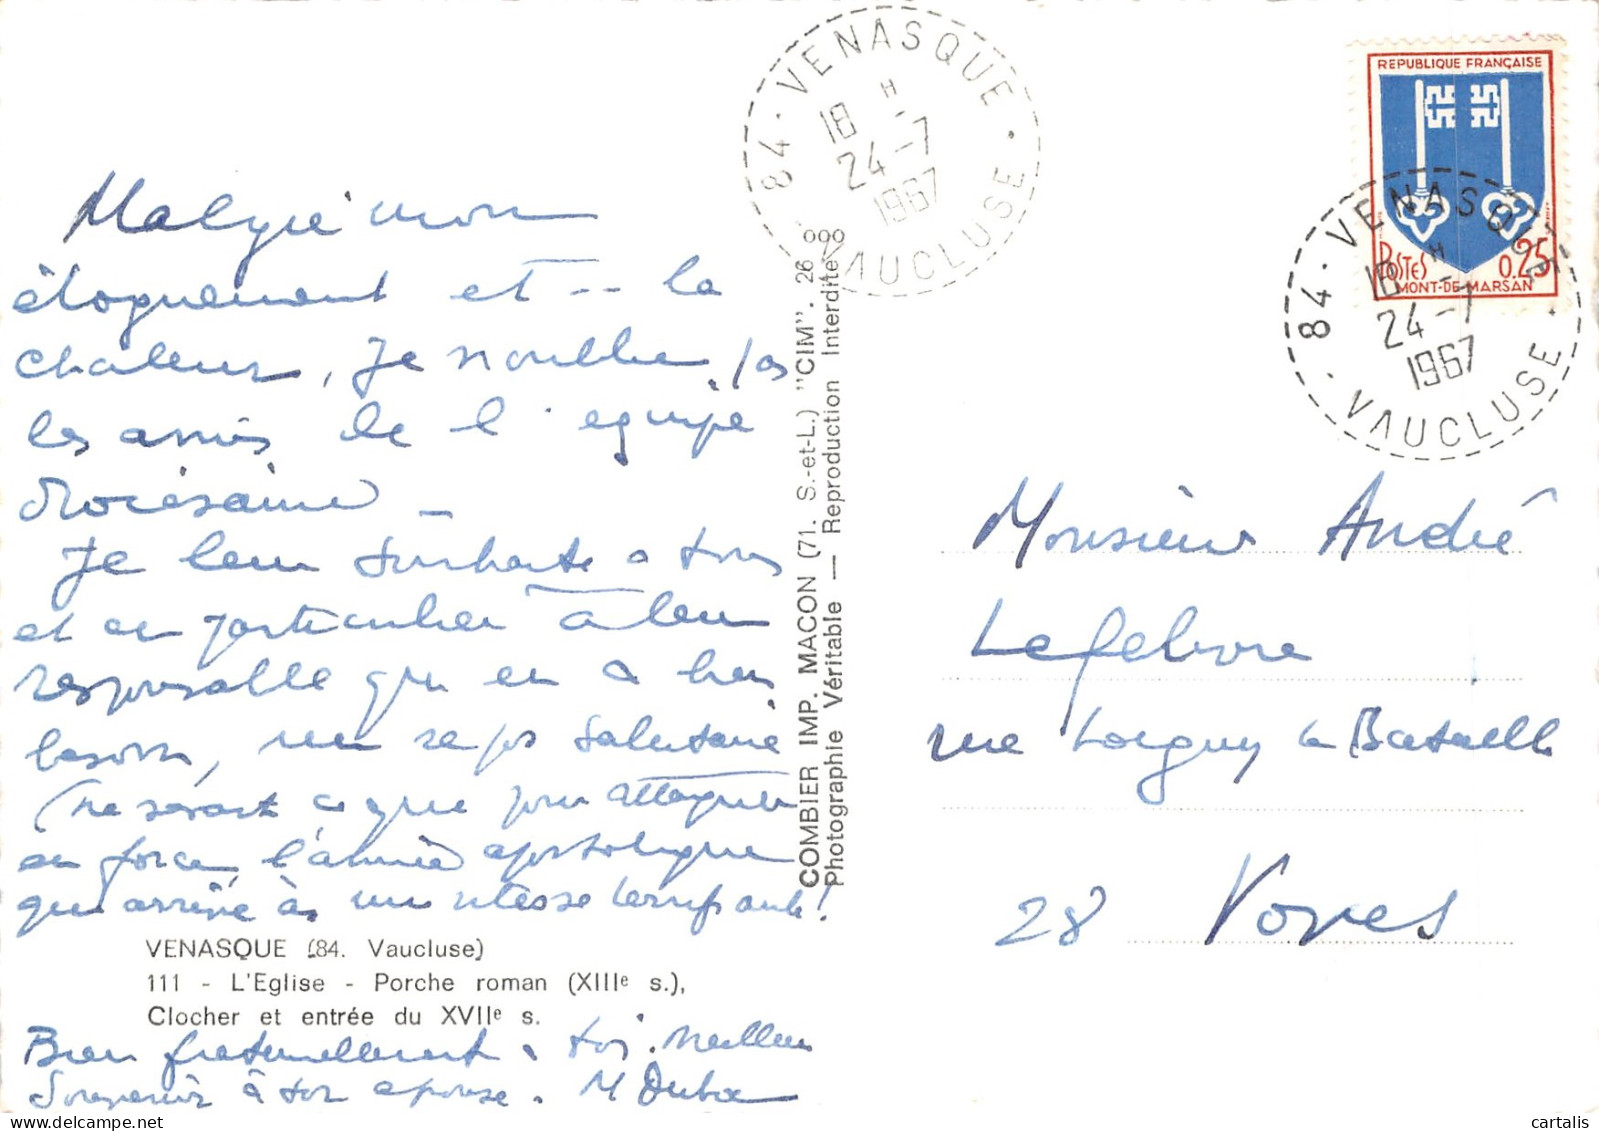 Malgré mon
éloignement et -- la
chaleur, je n'oublie pas
les amis de l'équipe
diocésaine -
Je leur souhaite à tous
et en particulier à leur
responsable qui en a bien
besoin, un repos salutaire
(ne serait ce que pour attaquer
en force, l'année apostolique
qui arrive à une vitesse terrifiante !
VENASQUE (84. Vaucluse)
111 - L'Eglise - Porche roman (XIIIe s.),
Clocher et entrée du XVIIe s.
Bien fraternellement à toi. Meilleur
Souvenir à ton épouse. M
COMBIER IMP. MACON (71. S.-et-L.) "CIM". 26
Photographie Véritable — Reproduction Interdite
84 · VENASQUE · VAUCLUSE ·
18 H
24-7
1967
REPUBLIQUE FRANÇAISE
POSTES 0.25
MONT-DE-MARSAN
84 · VENASQUE · VAUCLUSE ·
18 H
24-7
1967
Monsieur André
Lefebvre
rue Loigny la Bataille
28 Voves
cartalis